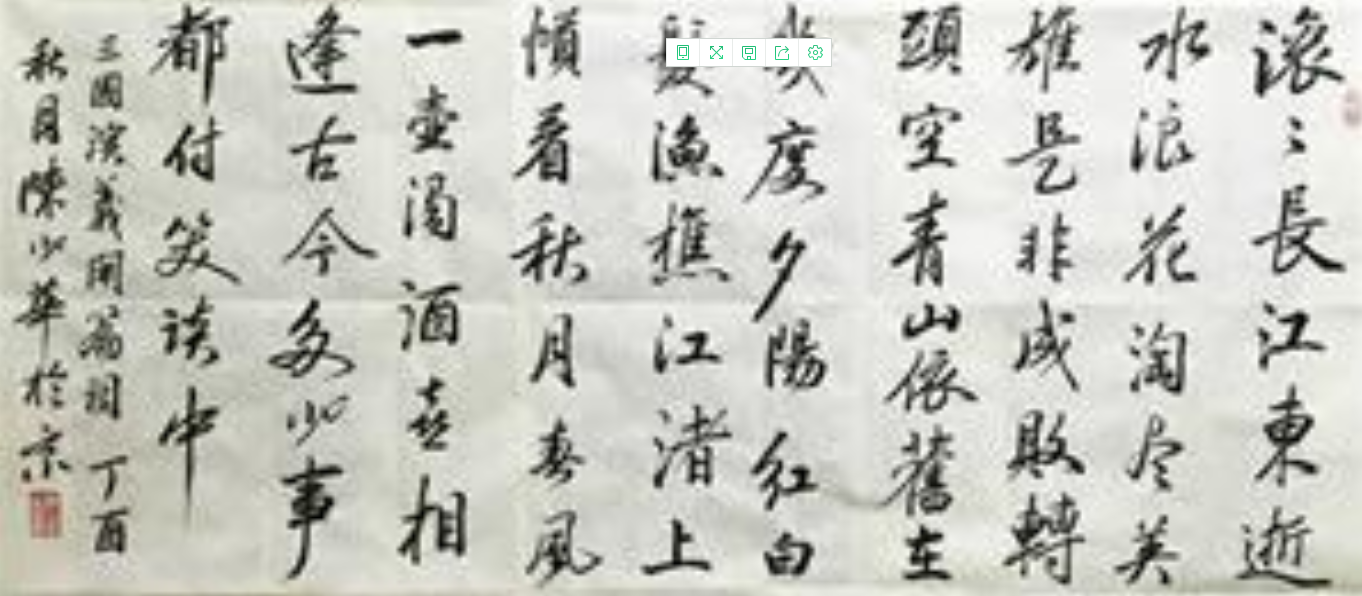 滚〻長江東逝
水浪花淘尽英
雄是非成敗轉
頭空青山依舊在
度夕陽紅白
髮漁樵江渚上
慣看秋月春風
一壺濁酒喜相
逢古今多少事
都付笑談中
三國演義開篇詞 丁酉
秋月陳少華於京